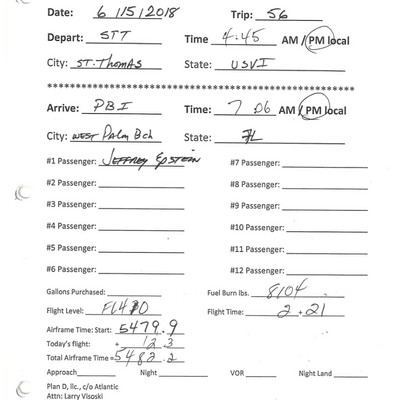 Date: 6/15/2018 Trip: 56
Depart: STT Time 4:45 AM / PM local
City: ST. Thomas State: USVI
**********************************************
Arrive: PBI Time: 7:06 AM / PM local
City: WEST Palm Bch State: FL
#1 Passenger: JEFFREY EPSTEIN #7 Passenger:
#2 Passenger: #8 Passenger:
#3 Passenger: #9 Passenger:
#4 Passenger: #10 Passenger:
#5 Passenger: #11 Passenger:
#6 Passenger: #12 Passenger:
Gallons Purchased: Fuel Burn lbs. 8104
Flight Level: FL430 Flight Time: 2 + 21
Airframe Time: Start: 5479.9
Today's flight: + 2.3
Total Airframe Time = 5482.2
Approach Night VOR Night Land
Plan D, llc., c/o Atlantic
Attn: Larry Visoski